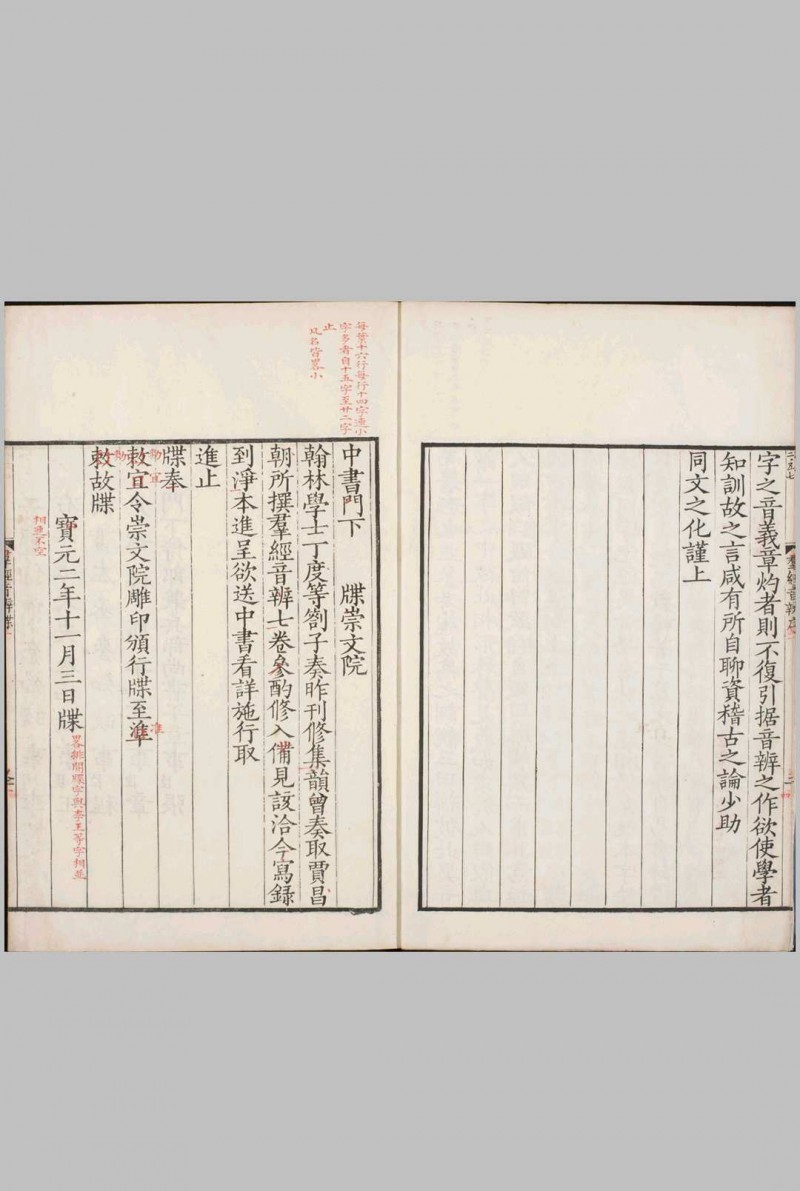 字之音義章灼者則不復引据音辨之作欲使學者
知訓故之言咸有所自聊資稽古之論少助
同文之化謹上
每葉十六行每行十四字邊小
字多者自十五字至廿二字
止
名皆畧小
中書門下　牒崇文院
翰林學士丁度等劄子奏昨刊修集韻曾奏取賈昌
朝所撰羣經音辨七卷參酌修入備見該洽今寫錄
到淨本進呈欲送中書看詳施行取
進止
牒奉
敕宜令崇文院雕印頒行牒至準
準
敕故牒
寶元二年十一月三日牒
畧排開牒字與奉王等字相並
相連不空
羣經音辨牒